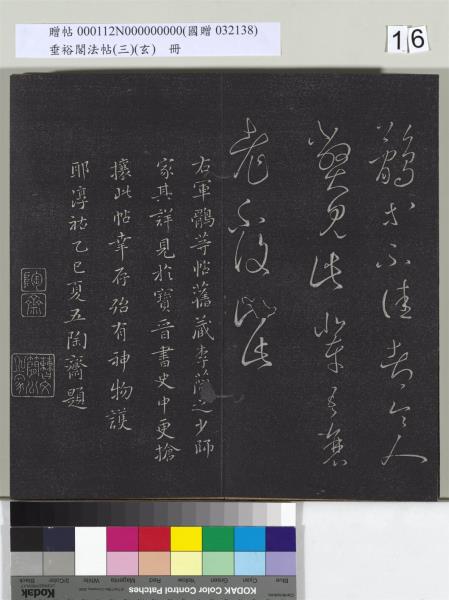 贈帖 000112N000000000(國贈 032138)
垂裕閣法帖(三)(玄) 冊
16
鶻等不佳都令人
弊見此輩吾衰
老不復堪此
右軍鶻等帖舊藏李少師
家其詳見於寶晉書史中更搶
攘此帖幸存殆有神物護
耶淳祐乙巳夏五陶齋題
陶齋
Kodak Color Control Patches
Blue Cyan Green Yellow Red Magenta White 3/Color Black